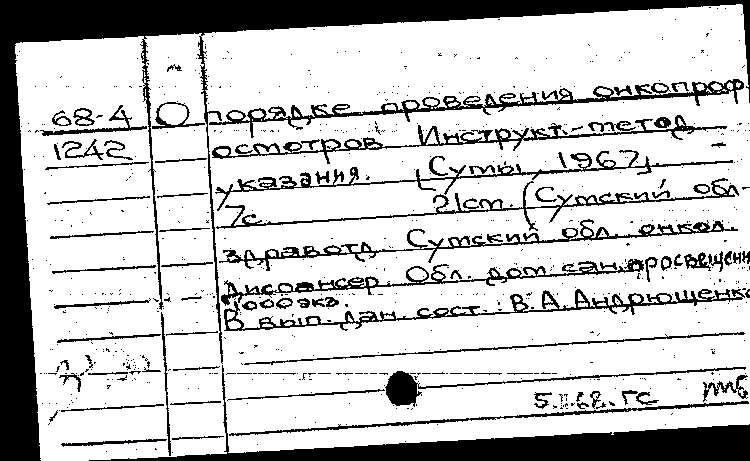 68-4 О порядке проведения онкопроф.
1242 осмотров. Инструкт.-метод.
указания. [Сумы, 1967].
7с. 21см. (Сумский обл-
здравотд. Сумский обл. онкол.
диспансер. Обл. дом сан. просвещени
1000 экз.
В вып. дан. сост.: В.А.Андрющенко
5.II.68. ГС